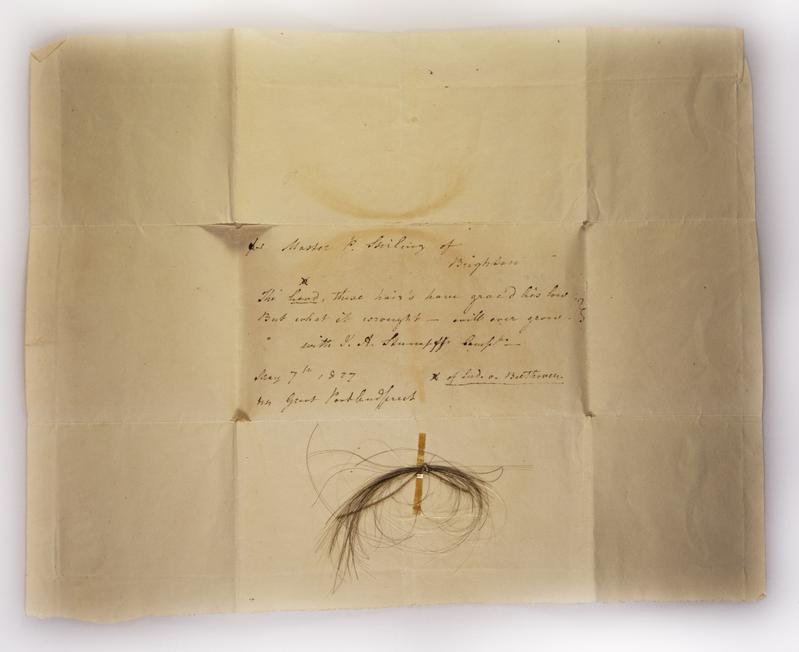 for Master P. Stirling of
Brighton
x
Tho' head, these hair's have grac'd lies low
But what it wrought — will ever grow.
with J. A. Stumpff's Compts —
May 7th 1827
x of Lud. v. Beethoven.
Great Portland Street